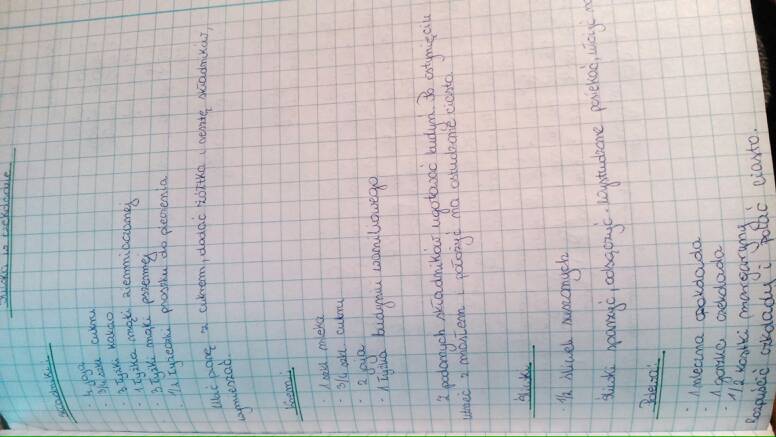 Śliwka w czekoladzie
Składniki:
- 4 jaja
- 3/4 szkl. cukru
- 2 łyżki kakao
- 1 łyżka mąki ziemniaczanej
- 3 łyżki mąki pszennej
- 1/2 łyżeczki proszku do pieczenia
Ubić pianę z cukrem, dodać żółtka i resztę składników,
wymieszać.
Krem:
- 1 szkl mleka
- 3/4 szkl cukru
- 2 jaja
- 1 łyżka budyniu waniliowego
Z podanych składników ugotować budyń. Po ostygnięciu
utrzeć z masłem i położyć na ostudzone ciasto.
Śliwki:
1/2 śliwek suszonych
Śliwki sparzyć, odsączyć. Wystudzone posiekać, ułożyć na
Polewa:
- 1 mleczna czekolada
- 1 gorzka czekolada
- 1/2 kostki margaryny
Rozpuścić czekoladę i polać ciasto.